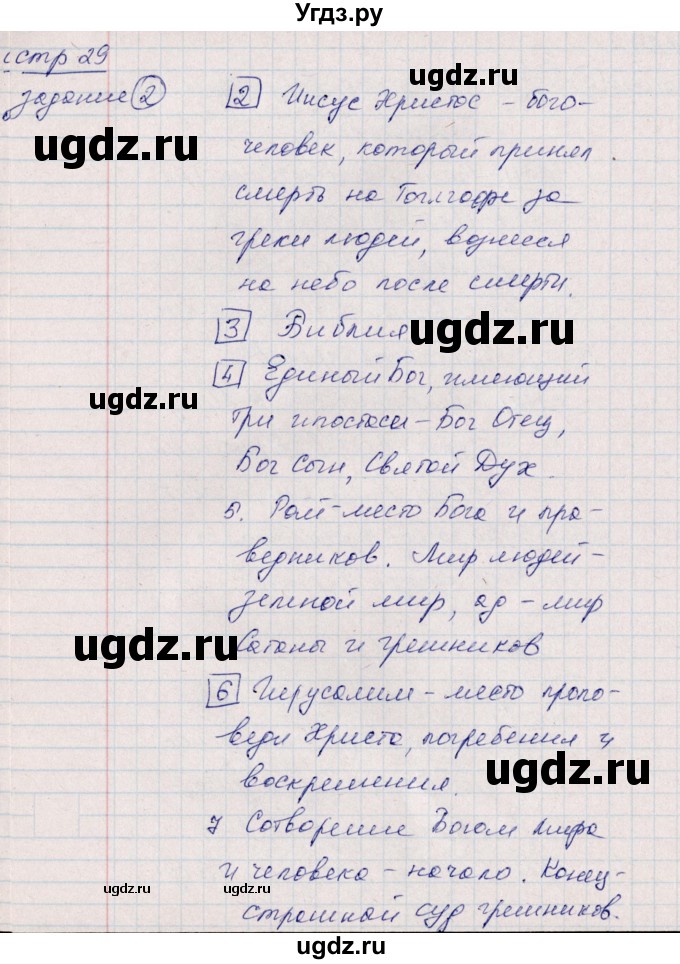 Угдз.ру
стр 29
задание 2
2 Иисус Христос - бого-
человек, который принял
смерть на Голгофе за
грехи людей, вознесся
на небо после смерти.
3 Библия
4 Единый Бог, имеющий
Три ипостаси - Бог Отец,
Бог Сын, Святой Дух.
5. Рай - место Бога и пра-
ведников. Мир людей -
земной мир, ад - мир
Сатаны и грешников
6 Иерусалим - место пропо-
веди Христа, погребения и
воскрешения.
7 Сотворение Богом мира
и человека - начало. Конец-
страшной суд грешников.
ugdz.ru
ugdz.ru
ugdz.ru
ugdz.ru
ugdz.ru
ugdz.ru
ugdz.ru
ugdz.ru
ugdz.ru
ugdz.ru